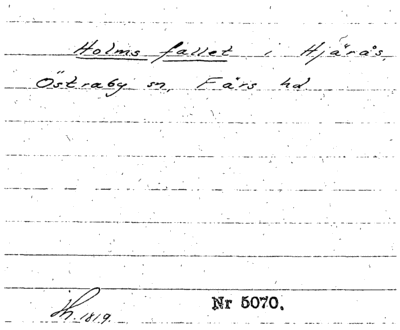 Holms fallet i Hjärås,
Östraby sn, Färs hd
Nr 5070.
Th. 1819.